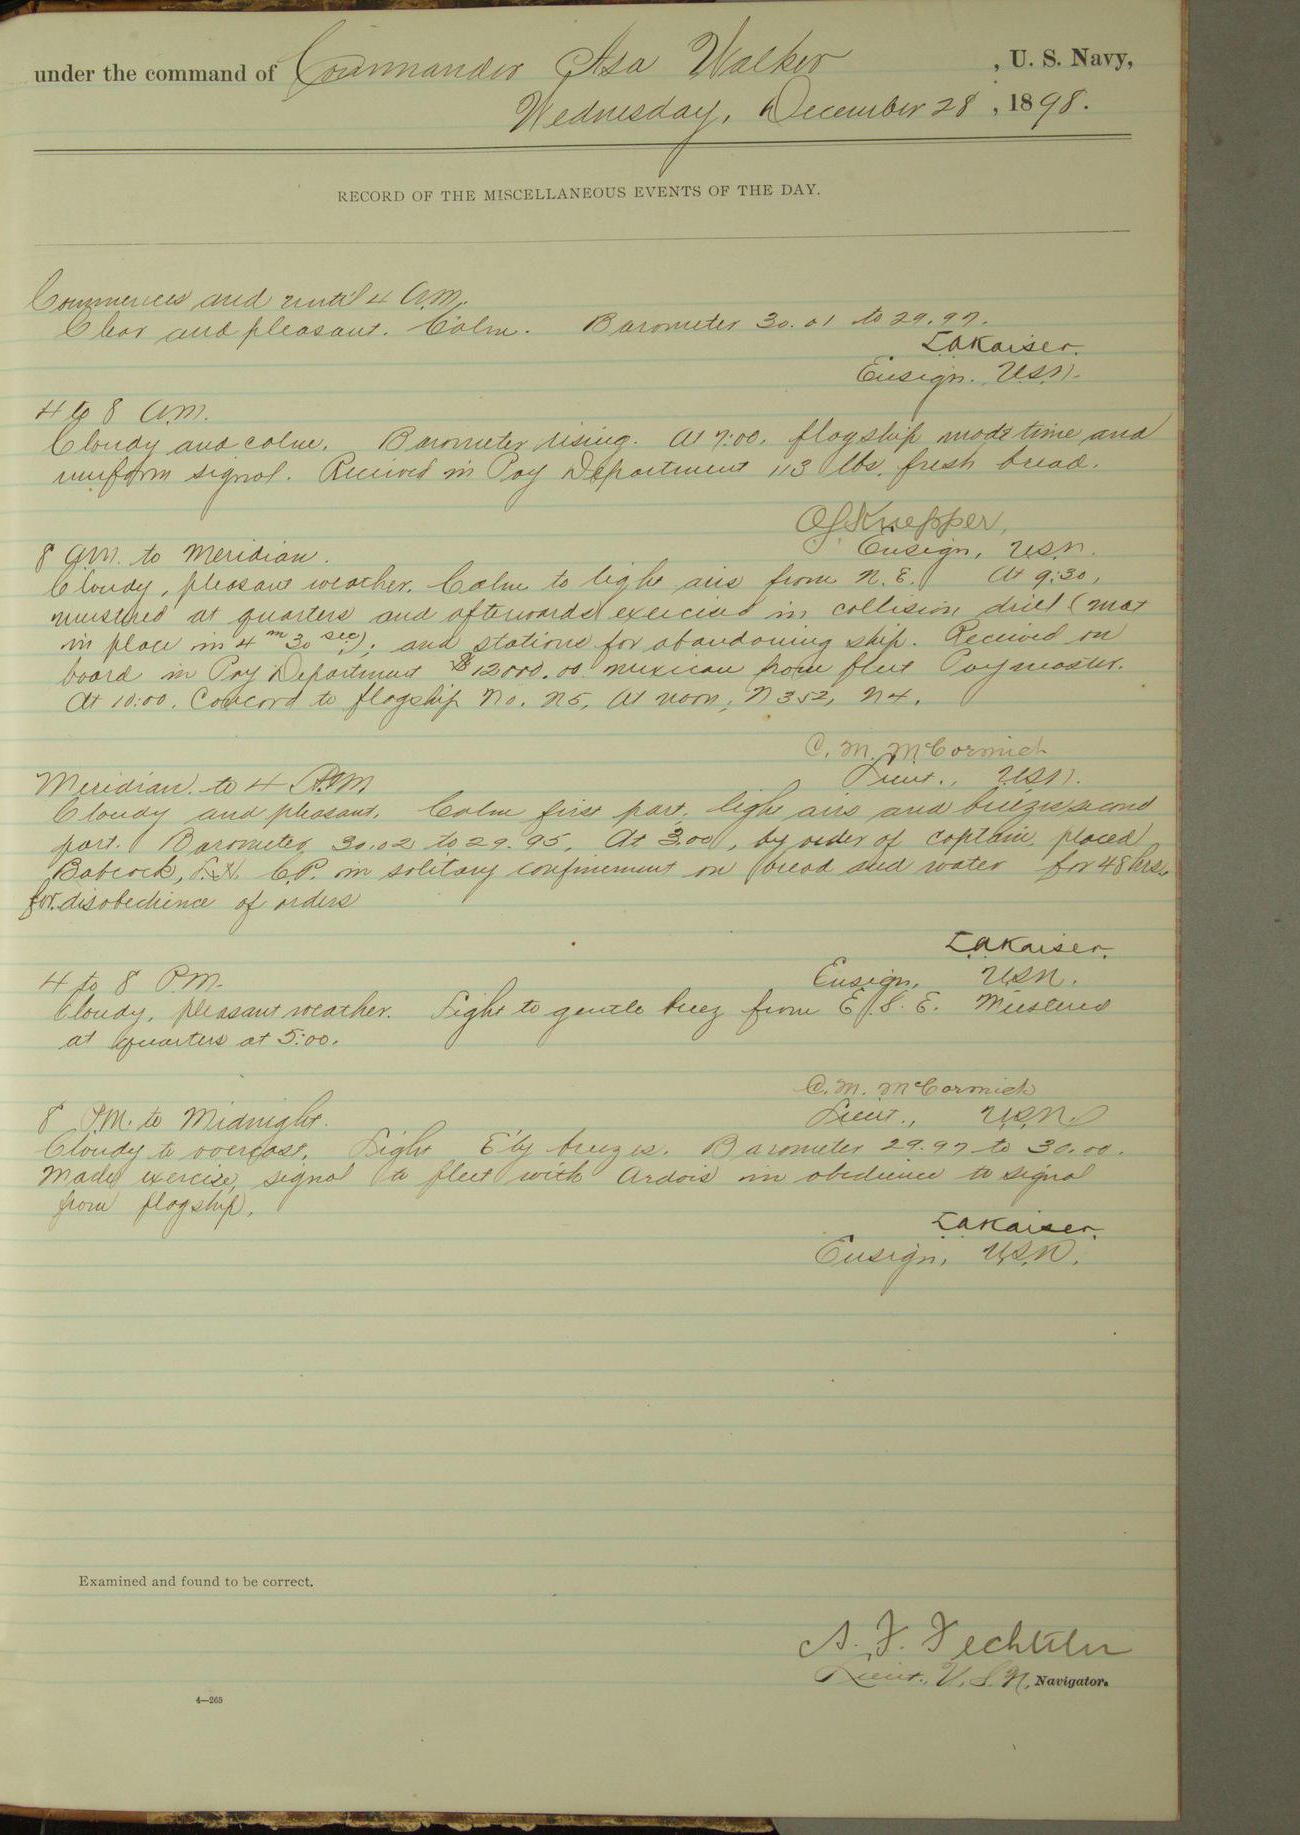 under the command of Commander Asa Walker, U. S. Navy,
Wednesday, December 28, 1898.
RECORD OF THE MISCELLANEOUS EVENTS OF THE DAY.
Commences and until 4 A.M.
Clear and pleasant. Calm. Barometer 30.01 to 29.97.
L.A. Kaiser.
Ensign. U.S.N.
4 to 8 A.M.
Cloudy and calm. Barometer rising. At 7:00. flagship made time and
uniform signal. Received in Pay Department 113 lbs. fresh bread.
O.J. Knepper,
Ensign, U.S.N.
8 A.M. to Meridian.
Cloudy, pleasant weather. Calm to light airs from N. E. At 9:30,
mustered at quarters and afterwards exercised in collision drill (mat
in place in 4 m 30 sec); and stations for abandoning ship. Received on
board in Pay Department $12000.00 Mexican from fleet Paymaster.
At 10:00. Concord to flagship No. N5, At noon, N352, N4.
C. M. McCormick
Lieut., U.S.N.
Meridian. to 4 P.M.
Cloudy and pleasant. Calm first part, light airs and breezes second
part. Barometer 30.02 to 29.95. At 3.00, by order of captain, placed
Babcock, C.P. in solitary confinement on bread and water for 48 hrs.
for disobedience of orders
L.A. Kaiser.
Ensign, U.S.N.
4 to 8 P.M.
Cloudy, pleasant weather. Light to gentle breez from E. S. E. Mustered
at quarters at 5:00.
C. M. McCormick
Lieut., U.S.N.
8 P.M. to Midnight.
Cloudy to overcast. Light E'ly breezes. Barometer 29.97 to 30.00.
Made exercise signal to fleet with Ardois in obedience to signal
from flagship.
L.A. Kaiser.
Ensign, U.S.N.
Examined and found to be correct.
A. F. Fechteler
Lieut., U. S. N., Navigator.
4—265